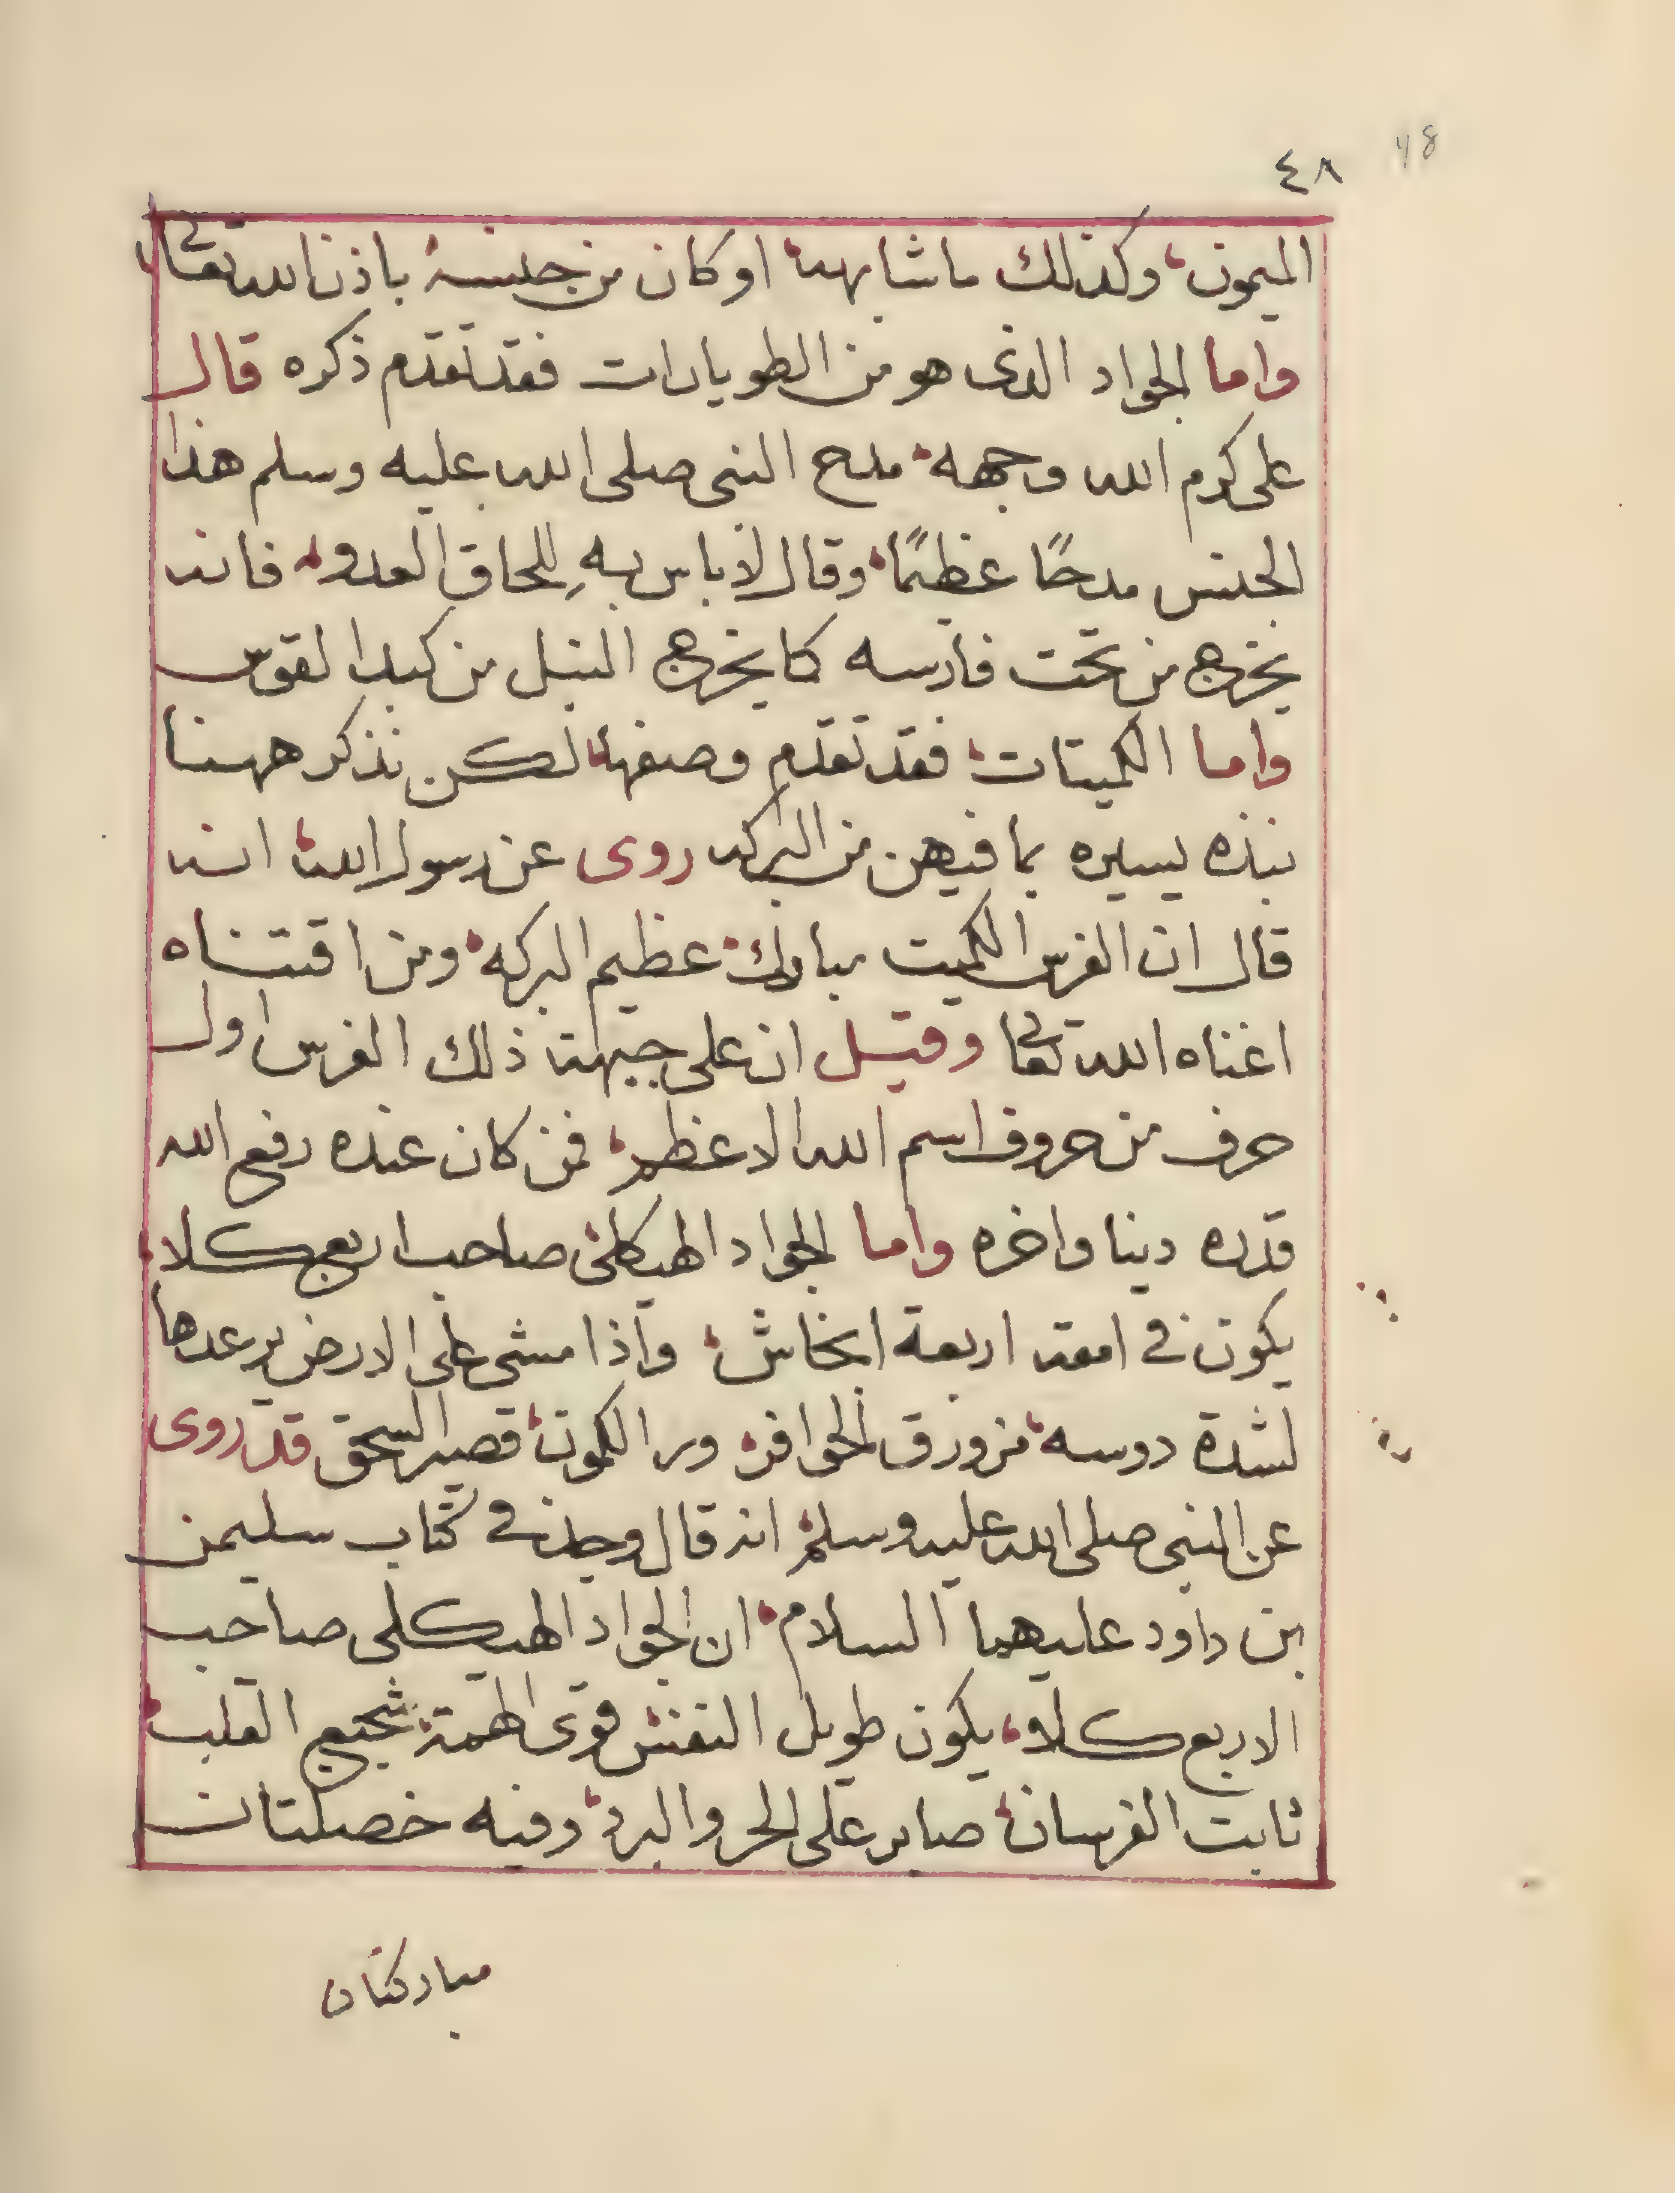 48
٤٨
الميمون، وكذلك ما شابهه، او كان من جنسه، باذن الله تعالى
واما الجواد الذى هو من الطويارات فقد تقدم ذكره قال
على كرم الله وجهه، مدح النبى صلى الله عليه وسلم هذا
الجنس مدحًا عظيمًا، وقال لا باس به للحاق العدو، فانه
يخرج من تحت فارسه كما يخرج النبل من كبد القوس
واما الكميتات، فقد تقدم وصفها، لكن نذكر ههنا
نبذه يسيره بما فيهن من البركه روى عن رسول الله، انه
قال ان الفرس الكميت مبارك، عظيم البركه، ومن اقتناه
اغناه الله تعالى وقيل ان على جبهة ذلك الفرس اول
حرف من حروف اسم الله الاعظم، فمن كان عنده رفع الله
قدره دينا واخره واما الجواد الهيكلى، صاحب اربع كلا،
يكون فى امعته اربعة ابخاش، واذا مشى على الارض يرعدها
لشدة دوسه، مزورق الحوافر، ورا الكمون، قصير السحق قد روى
عن النبى صلى الله عليه وسلم، انه قال وجد فى كتاب سليمن
بن داود عليهما السلام، ان الجواد الهيكلى صاحب
الاربع كلا، يكون طويل النفس، قوى الهمة، شجيع القلب،
ثابت الفرسان، صابر على الحر والبرد، وفيه خصلتان
مباركتان